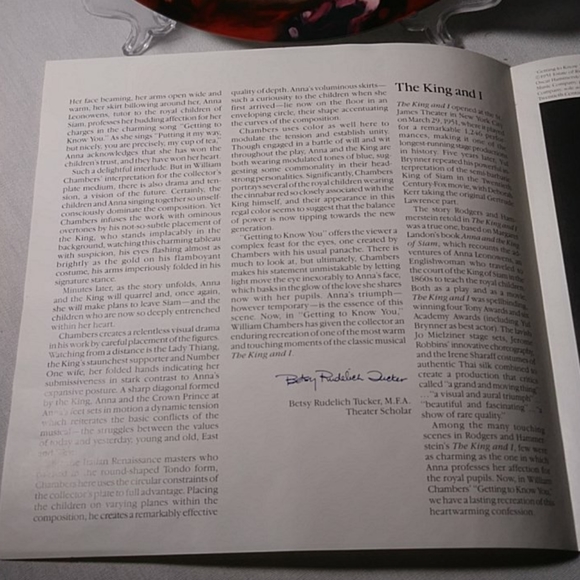 Her face beaming, her arms open wide and
warm, her skirt billowing around her, Anna
Leonowens, tutor to the royal children of
Siam, professes her budding affection for her
charges in the charming song "Getting to
Know You." As she sings "Putting it my way,
but nicely, you are precisely, my cup of tea,"
Anna acknowledges that she has won the
children's trust, and they have won her heart.
Such a delightful interlude. But in William
Chambers' interpretation for the collector's
plate medium, there is also drama and ten-
sion, a vision of the future. Certainly, the
children and Anna singing together so unself-
consciously dominate the composition. Yet
Chambers infuses the work with ominous
overtones by his not-so-subtle placement of
the King, who stands implacably in the
background, watching this charming tableau
with suspicion, his eyes flashing almost as
brightly as the gold on his flamboyant
costume, his arms imperiously folded in his
signature stance.
Minutes later, as the story unfolds, Anna
and the King will quarrel and, once again,
she will make plans to leave Siam—and the
children who are now so deeply entrenched
within her heart.
Chambers creates a relentless visual drama
in his work by careful placement of the figures.
Watching from a distance is the Lady Thiang,
the King's staunchest supporter and Number
One wife, her folded hands indicating her
submissiveness in stark contrast to Anna's
expansive posture. A sharp diagonal formed
by the King, Anna and the Crown Prince at
Anna's feet sets in motion a dynamic tension
which reiterates the basic conflicts of the
musical—the struggles between the values
of today and yesterday, young and old, East
and
Italian Renaissance masters who
the round-shaped Tondo form,
Chambers here uses the circular constraints of
the collector's plate to full advantage. Placing
the children on varying planes within the
composition, he creates a remarkably effective
quality of depth. Anna's voluminous skirts—
such a curiosity to the children when she
first arrived—lie now on the floor in an
enveloping circle, their shape accentuating
the curves of the composition.
Chambers uses color as well here to
modulate the tension and establish unity.
Though engaged in a battle of will and wit
throughout the play, Anna and the King are
both wearing modulated tones of blue, sug-
gesting some commonality in their head-
strong personalities. Significantly, Chambers
portrays several of the royal children wearing
the cinnabar red so closely associated with the
King himself, and their appearance in this
regal color seems to suggest that the balance
of power is now tipping towards the new
generation.
"Getting to Know You" offers the viewer a
complex feast for the eyes, one created by
Chambers with his usual panache. There is
much to look at, but ultimately, Chambers
makes his statement unmistakable by letting
light move the eye inexorably to Anna's face,
which basks in the glow of the love she shares
now with her pupils. Anna's triumph—
however temporary—is the essence of this
scene. Now, in "Getting to Know You,"
William Chambers has given the collector an
enduring recreation of one of the most warm
and touching moments of the classic musical
The King and I.
Betsy Rudelich Tucker
Betsy Rudelich Tucker, M.F.A.
Theater Scholar
The King and I
The King and I opened at the St.
James Theater in New York City
on March 29, 1951, where it played
for a remarkable 1,246 perfor-
mances, making it one of the
longest-running stage productions
in history. Five years later, Yul
Brynner repeated his powerful in-
terpretation of the semi-barbaric
King of Siam in the Twentieth
Century-Fox movie, with Deborah
Kerr taking the original Gertrude
Lawrence part.
The story Rodgers and Ham-
merstein retold in The King and I
was a true one, based on Margaret
Landon's book Anna and the King
of Siam, which recounts the ad-
ventures of Anna Leonowens, an
Englishwoman who traveled to
the court of the King of Siam in the
1860s to teach the royal children.
Both as a play and as a movie,
The King and I was spellbinding,
winning four Tony Awards and six
Academy Awards (including Yul
Brynner as best actor). The lavish
Jo Mielziner stage sets, Jerome
Robbins' innovative choreography
and the Irene Sharaff costumes of
authentic Thai silk combined to
create a production that critics
called "a grand and moving thing"
..."a visual and aural triumph"...
"beautiful and fascinating"..."a
show of rare quality."
Among the many touching
scenes in Rodgers and Hammer-
stein's The King and I, few were
as charming as the one in which
Anna professes her affection for
the royal pupils. Now, in William
Chambers' "Getting to Know You,"
we have a lasting recreation of this
heartwarming confession.
Getting to Know